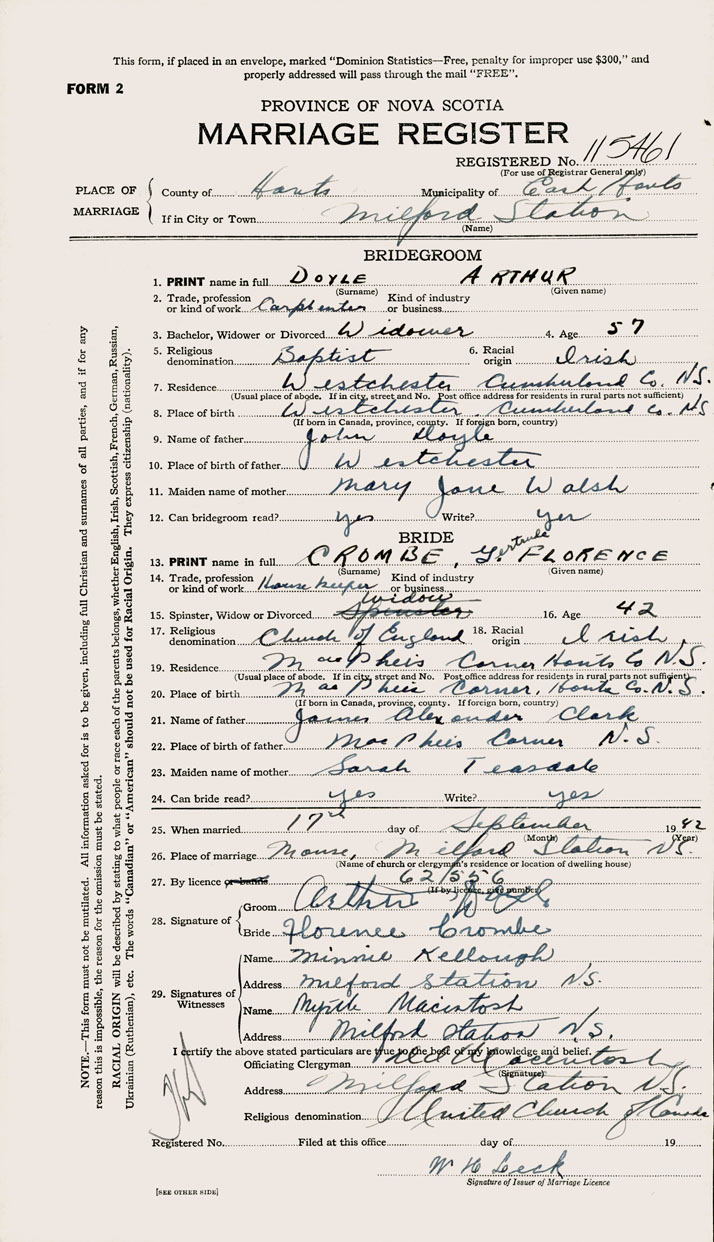 This form, if placed in an envelope, marked "Dominion Statistics—Free, penalty for improper use $300," and
properly addressed will pass through the mail "FREE".
FORM 2
PROVINCE OF NOVA SCOTIA
MARRIAGE REGISTER
REGISTERED No. 115461
(For use of Registrar General only)
PLACE OF MARRIAGE
County of Hants Municipality of East Hants
If in City or Town Milford Station
(Name)
BRIDEGROOM
1. PRINT name in full DOYLE ARTHUR
(Surname) (Given name)
2. Trade, profession or kind of work Carpenter Kind of industry or business
3. Bachelor, Widower or Divorced Widower 4. Age 57
5. Religious denomination Baptist 6. Racial origin Irish
7. Residence Westchester Cumberland Co. N.S.
(Usual place of abode. If in city, street and No. Post office address for residents in rural parts not sufficient)
8. Place of birth Westchester, Cumberland Co. N.S
(If born in Canada, province, county. If foreign born, country)
9. Name of father John Doyle
10. Place of birth of father Westchester
11. Maiden name of mother Mary Jane Walsh
12. Can bridegroom read? yes Write? yes
BRIDE
13. PRINT name in full CROMBE, Gertrude FLORENCE
(Surname) (Given name)
14. Trade, profession or kind of work Housekeeper Kind of industry or business
15. Spinster, Widow or Divorced Spinster Widow 16. Age 42
17. Religious denomination Church of England 18. Racial origin Irish
19. Residence MacPheis Corner Hants Co N.S.
(Usual place of abode. If in city, street and No. Post office address for residents in rural parts not sufficient)
20. Place of birth MacPheis Corner, Hants Co. N.S.
(If born in Canada, province, county. If foreign born, country)
21. Name of father James Alexander Clark
22. Place of birth of father MacPheis Corner N.S.
23. Maiden name of mother Sarah Teasdale
24. Can bride read? yes Write? yes
25. When married 17th day of September 1942
(Month) (Year)
26. Place of marriage Manse, Milford Station N.S.
(Name of church or clergyman's residence or location of dwelling house)
27. By licence or banns 62/556
(If by licence, give number)
28. Signature of
Groom Arthur Doyle
Bride Florence Crombe
29. Signatures of Witnesses
Name Minnie Kellough
Address Milford Station N.S.
Name Myrtle Macintosh
Address Milford Station N.S.
I certify the above stated particulars are true to the best of my knowledge and belief.
Officiating Clergyman Macintosh
(Signature)
Address Milford Station N.S.
Religious denomination United Church of Canada
Registered No. Filed at this office day of 19
W H Leck
Signature of Issuer of Marriage Licence
[SEE OTHER SIDE]
NOTE.—This form must not be mutilated. All information asked for is to be given, including full Christian and surnames of all parties, and if for any
reason this is impossible, the reason for the omission must be stated.
RACIAL ORIGIN will be described by stating to what people or race each of the parents belongs, whether English, Irish, Scottish, French, German, Russian,
Ukrainian (Ruthenian), etc. The words "Canadian" or "American" should not be used for Racial Origin. They express citizenship (nationality).